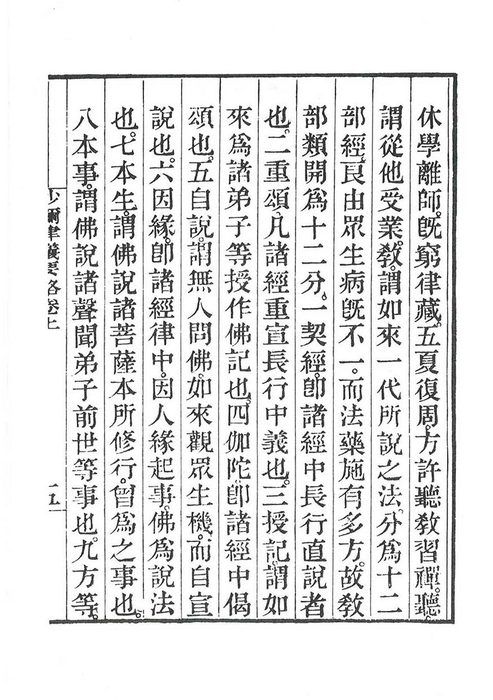 休學離師。旣窮律藏。五夏復周。方許聽敎習禪。聽。
謂從他受業。敎。謂如來一代所說之法。分爲十二
部經。良由眾生病旣不一。而法藥施有多方。故敎
部類開爲十二分。一契經。卽諸經中長行直說者
也。二重頌。凡諸經重宣長行中義也。三授記。謂如
來爲諸弟子等授作佛記也。四伽陀。卽諸經中偈
頌也。五自說。謂無人問佛。如來觀眾生機。而自宣
說也。六因緣。卽諸經律中。因人緣起事。佛爲說法
也。七本生。謂佛說諸菩薩本所修行。曾爲之事也。
八本事。謂佛說諸聲聞弟子前世等事也。九方等。
沙彌律儀要略卷上